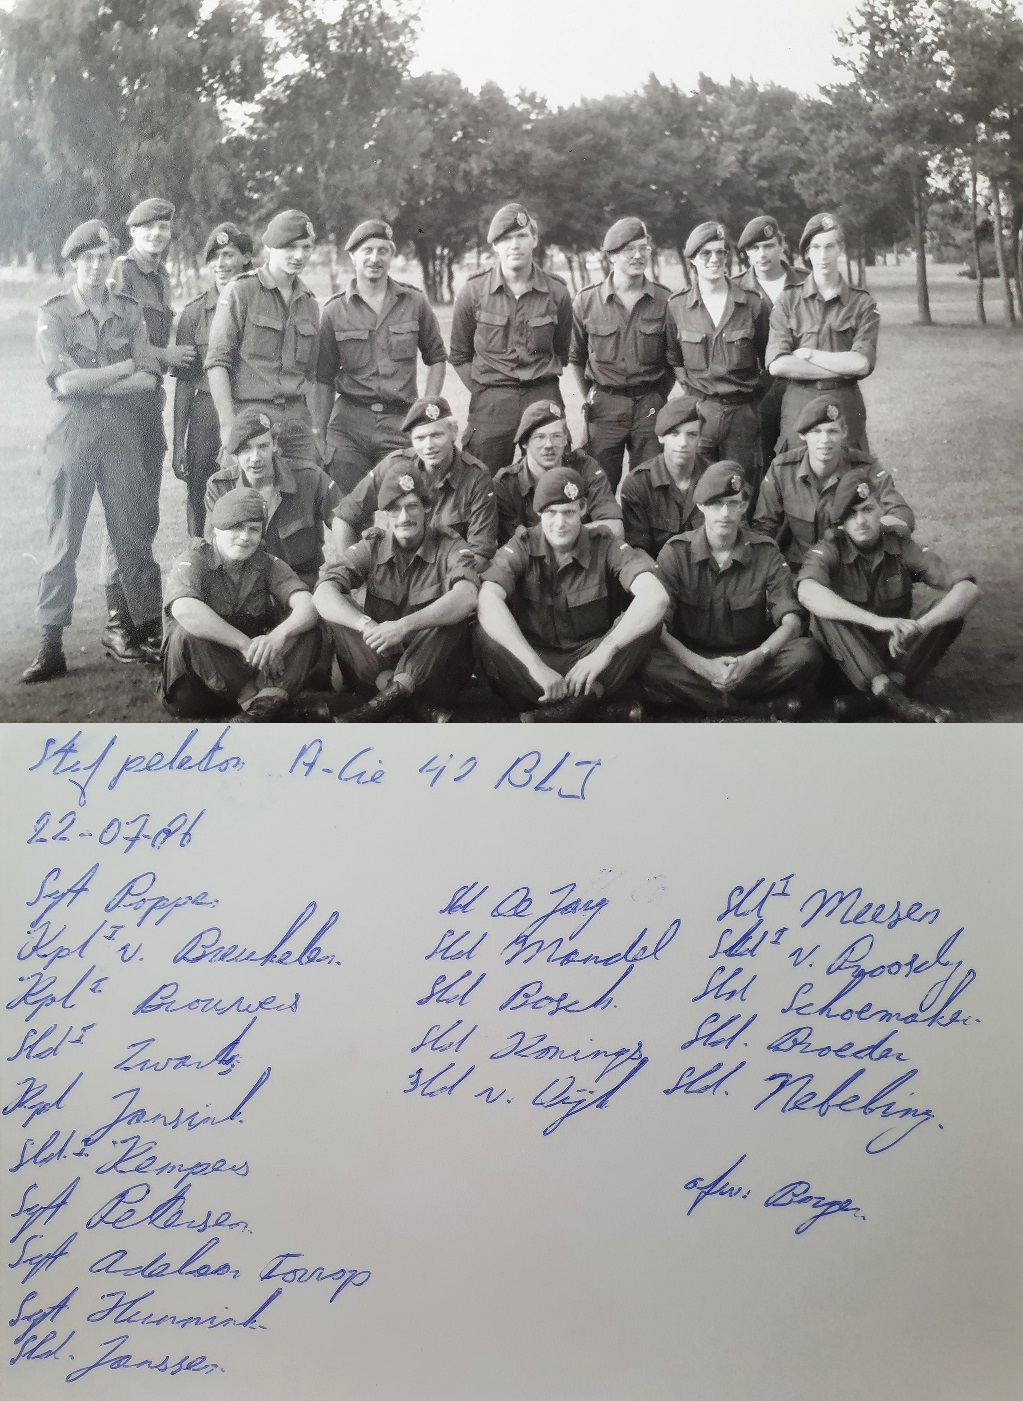 Staf peleton A-Cie 42 BLJ
22-07-86
Sgt Poppe
Kpl I v. Breukelen
Kpl I Brouwers
Sld I Zwarts
Kpl Jansink
Sld. I Kempers
Sgt Petersen
Sgt Adelaar Torrop
Sgt Hunnink
Sld. Janssen
Sld De Jong
Sld Mandel
Sld Bosch.
Sld Konings
Sld v. Dijk
Sld I Meesen
Sld I v. Proosdy
Sld Schoemaker
Sld. Broeder
Sld. Nebeling.
afw: Borger